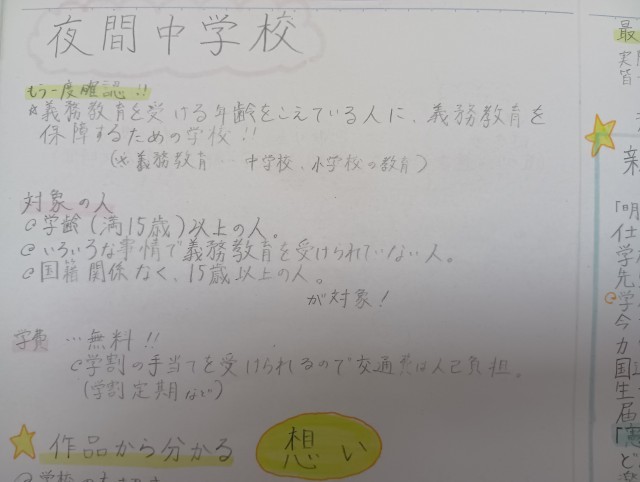 夜間中学校
もう一度確認!!
☆義務教育を受ける年齢をこえている人に、義務教育を
保障するための学校!!
(※義務教育…中学校、小学校の教育)
対象の人
学齢(満15歳)以上の人。
いろいろな事情で義務教育を受けられていない人。
国籍関係なく、15歳以上の人。
が対象!
学費…無料!!
学割の手当てを受けられるので交通費は人己負担。
(学割定期など)
☆作品から分かる 想い
最
実
皆
「明
仕
学
先
学
今
カ
国
生
届
ど